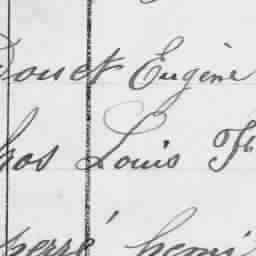 Douet Eugène
hos Louis Th
herré henri